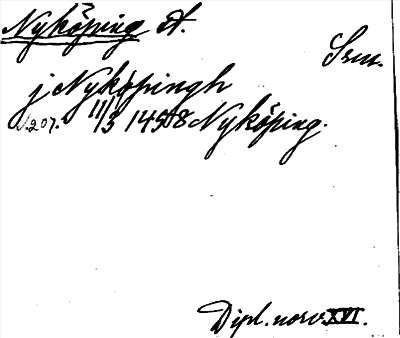 Nyköping st.
Srm.
j Nyköpingh
s. 207. 11/3 1458 Nyköping.
Dipl. norv. XVI.